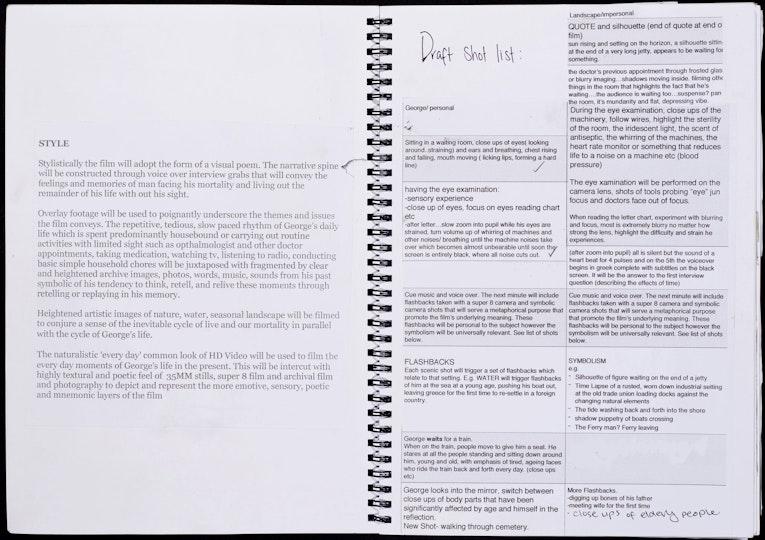 STYLE
Stylistically the film will adopt the form of a visual poem. The narrative spine
will be constructed through voice over interview grabs that will convey the
feelings and memories of man facing his mortality and living out the
remainder of his life with out his sight.
Overlay footage will be used to poignantly underscore the themes and issues
the film conveys. The repetitive, tedious, slow paced rhythm of George's daily
life which is spent predominantly housebound or carrying out routine
activities with limited sight such as opthalmologist and other doctor
appointments, taking medication, watching tv, listening to radio, conducting
basic simple household chores will be juxtaposed with fragmented by clear
and heightened archive images, photos, words, music, sounds from his past
symbolic of his tendency to think, retell, and relive these moments through
retelling or replaying in his memory.
Heightened artistic images of nature, water, seasonal landscape will be filmed
to conjure a sense of the inevitable cycle of live and our mortality in parallel
with the cycle of George's life.
The naturalistic 'every day' common look of HD Video will be used to film the
every day moments of George's life in the present. This will be intercut with
highly textural and poetic feel of 35MM stills, super 8 film and archival film
and photography to depict and represent the more emotive, sensory, poetic
and mnemonic layers of the film
Draft Shot list:
George/ personal
Sitting in a waiting room, close up of eyes( looking
around..straining) and ears and breathing, chest rising
and falling, mouth moving ( licking lips, forming a hard
line)
having the eye examination:
-sensory experience
-close up of eyes, focus on eyes reading chart
etc
-after letter...slow zoom into pupil while his eyes are
strained, turn volume up of whirring of machines and
other noises/ breathing until the machine noises take
over which becomes almost unbearable until soon thy
screen is entirely black, where all noise cuts out.
Cue music and voice over. The next minute will include
flashbacks taken with a super 8 camera and symbolic
camera shots that will serve a metaphorical purpose that
promote the film's underlying meaning. These
flashbacks will be personal to the subject however the
symbolism will be universally relevant. See list of shots
below.
FLASHBACKS
Each scenic shot will trigger a set of flashbacks which
relate to that setting. E.g. WATER will trigger flashbacks
of him at the sea at a young age, pushing his boat out,
leaving greece for the first time to re-settle in a foreign
country.
George waits for a train.
When on the train, people move to give him a seat. He
stares at all the people standing and sitting down around
him, young and old, with emphasis of tired, ageing faces
who ride the train back and forth every day. (close ups
etc)
George looks into the mirror, switch between
close ups of body parts that have been
significantly affected by age and himself in the
reflection.
New Shot- walking through cemetery.
Landscape/impersonal
QUOTE and silhouette (end of quote at end o
film)
sun rising and setting on the horizon, a silhouette sittin
at the end of a very long jetty, appears to be waiting for
something.
the doctor's previous appointment through frosted glas
or blurry imaging...shadows moving inside. filming othe
things in the room that highlight the fact that he's
waiting....the audience is waiting too...suspense? pan
the room, it's mundanity and flat, depressing vibe.
During the eye examination, close ups of the
machinery, follow wires, highlight the sterility
of the room, the iridescent light, the scent of
antiseptic, the whirring of the machines, the
heart rate monitor or something that reduces
life to a noise on a machine etc (blood
pressure)
The eye examination will be performed on the
camera lens, shots of tools probing "eye" jun
focus and doctors face out of focus.
When reading the letter chart, experiment with blurring
and focus, most is extremely blurry no matter how
strong the lens, highlight the difficulty and strain he
experiences.
(after zoom into pupil) all is silent but the sound of a
heart beat for 4 pulses and on the 5th the voiceover
begins in greek complete with subtitles on the black
screen. It will be the answer to the first interview
question (describing the effects of time)
Cue music and voice over. The next minute will include
flashbacks taken with a super 8 camera and symbolic
camera shots that will serve a metaphorical purpose
that promote the film's underlying meaning. These
flashbacks will be personal to the subject however the
symbolism will be universally relevant. See list of shots
below.
SYMBOLISM
e.g.
- Silhouette of figure waiting on the end of a jetty
- Time Lapse of a rusted, worn down industrial setting
at the old trade union loading docks against the
changing natural elements
- The tide washing back and forth into the shore
- shadow puppetry of boats crossing
- The Ferry man? Ferry leaving
More Flashbacks.
-digging up bones of his father
-meeting wife for the first time
- close ups of elderly people